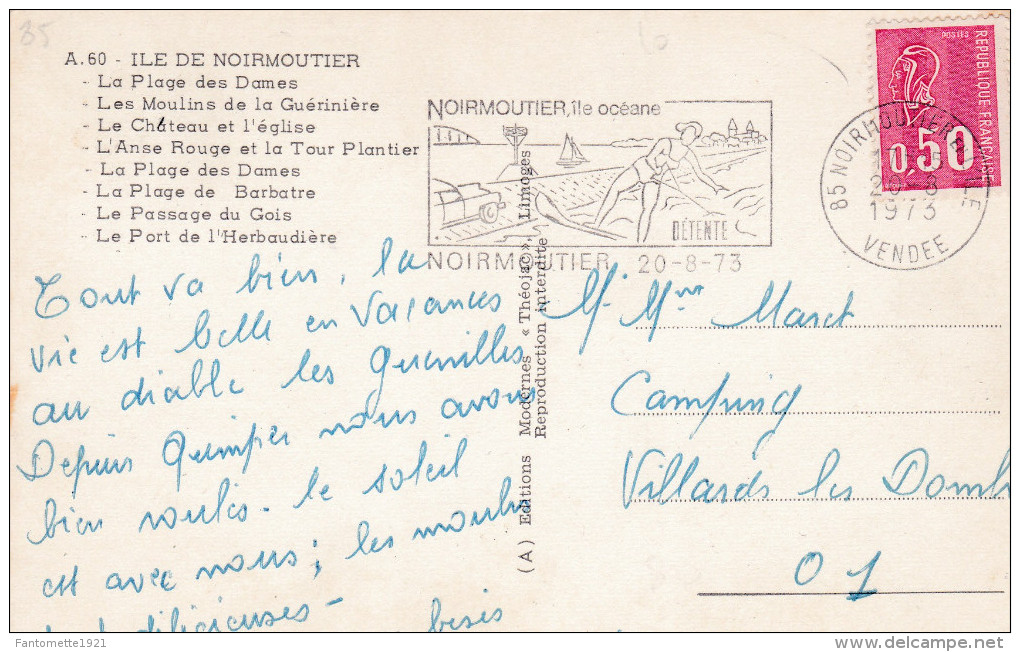 A.60 - ILE DE NOIRMOUTIER
- La Plage des Dames
- Les Moulins de la Guérinière
- Le Château et l'église
- L'Anse Rouge et la Tour Plantier
- La Plage des Dames
- La Plage de Barbatre
- Le Passage du Gois
- Le Port de l'Herbaudière
NOIRMOUTIER, île océane
DÉTENTE
NOIRMOUTIER 20-8-73
POSTES
REPUBLIQUE FRANÇAISE
0,50
85 NOIRMOUTIER EN L'ILE
1973
VENDEE
(A) Editions Modernes « Théojac », Limoges
Reproduction interdite
Tout va bien, la
vie est belle en vacances
au diable les guenilles
Depuis Quimper nous avons
bien roulés. le soleil
est avec nous; les moules
délicieuses -
bises
Mr Mme Maret
Camping
Villards les Domb
01
35
Fantomette1921
delcampe.net